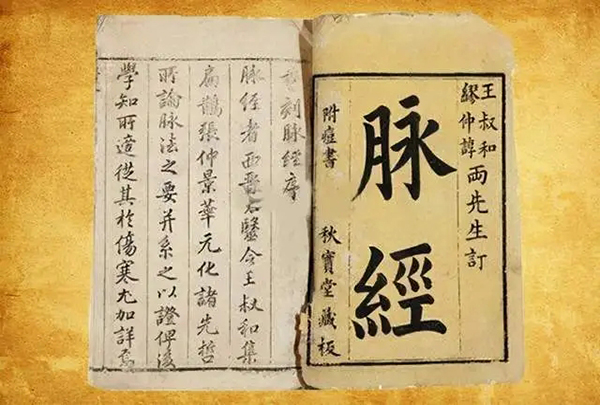 王叔和
繆仲諄
両先生訂
脉經
附痘書
秋寶堂藏板
刻脉經序
脉經者西晋太醫令王叔和集
扁鵲張仲景華元化諸先哲
所論脉法之要并系之以證俾後
學知所適從其於傷寒尤加詳焉